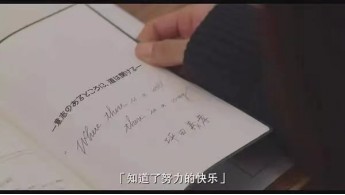 —意志のあるところに、道は開ける—
"Where there is a will
there is a way."
坪田
「知道了努力的快乐」